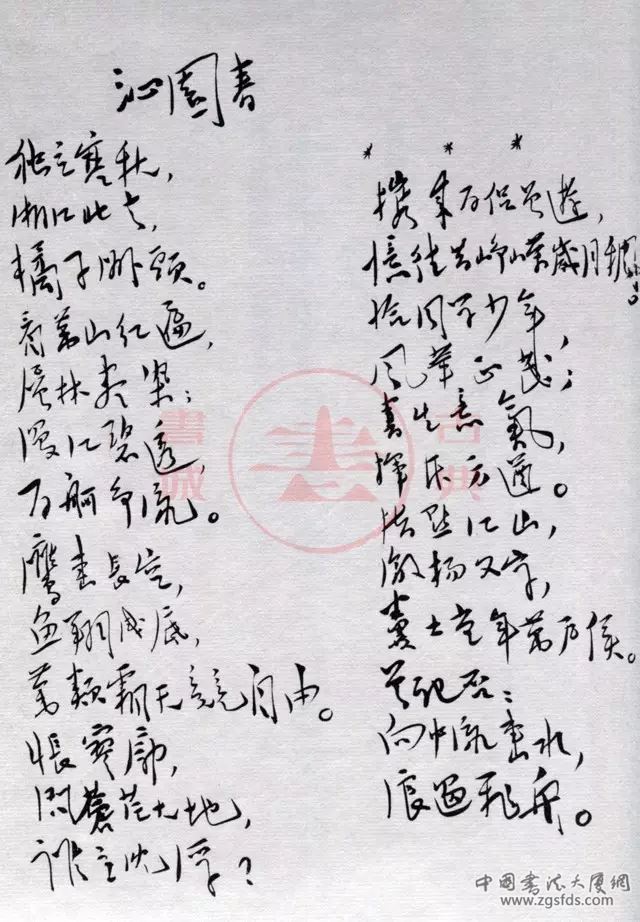 沁園春
独立寒秋,
湘江北去,
橘子洲頭。
看萬山红遍,
层林尽染;
漫江碧透,
百舸争流。
鹰击長空,
鱼翔浅底,
萬類霜天競自由。
怅寥廓,
问蒼茫大地,
谁主沉浮?
* * *
携来百侣曾遊,
憶往昔峥嵘歲月稠。
恰同学少年,
风华正茂;
書生意氣,
揮斥方遒。
指点江山,
激扬文字,
糞土當年萬户侯。
曾记否:
向中流击水,
浪遏飛舟。
書誠
古典
中国書法大厦網
www.zgsfds.com